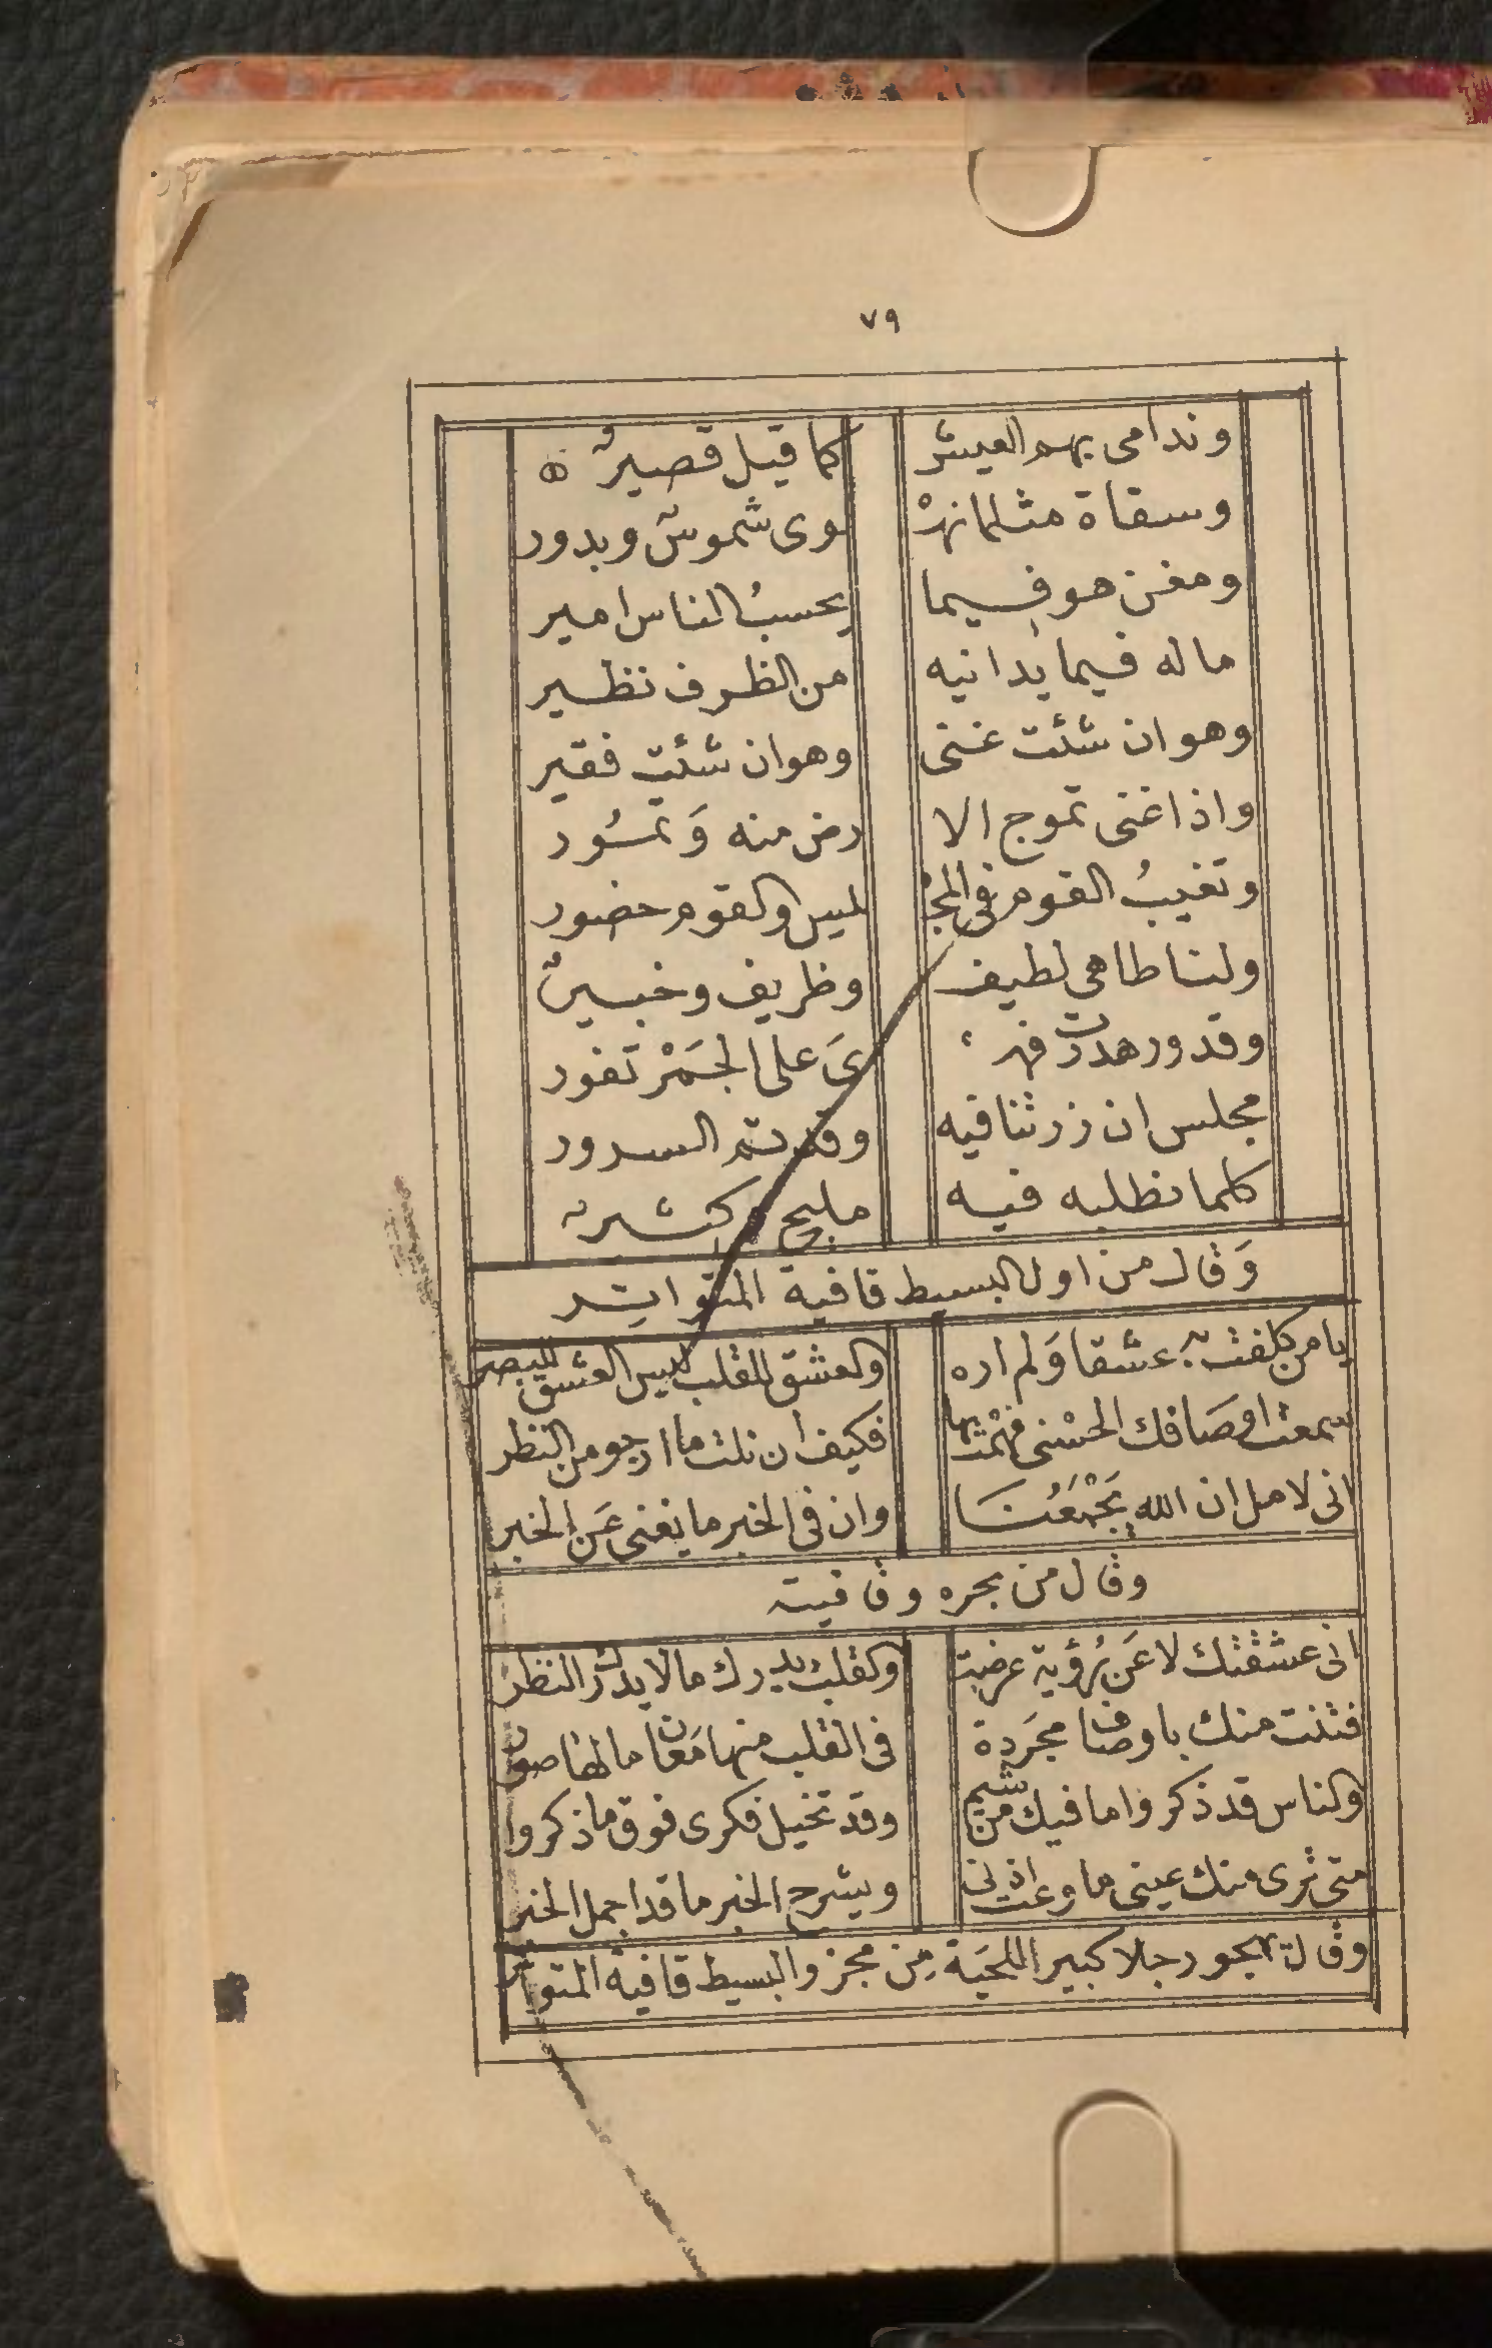 ٧٩
وندامى بهم العيش كما قيل قصيرٌ
وسقاة مثلما تهْ لوى شموسٌ وبدور
ومغن هو فيما يحسبُ الناس امير
ماله فيما يدانيه من الظرف نظير
وهو ان شئت غنى وهو ان شئت فقير
واذا غنى تموج الا رض منه وَتمسُور
وتغيبُ القوم فى المجْ لميس والقوم حضور
ولنا طاهى لطيف وظريف وخبيرٌ
وقدور هدرت فهـ ىَ على الجَمْر تفور
مجلس ان زرتنا فيه وقد تم السرور
كلما نطلبه فيه مليح وكثير
وَقال من اول البسيط قافية المتواتر
يا من كلفت به عشقا وَلم اره والعشق للقلب ليس العشق للبصر
سمعت اوصَافك الحسْنى فهمْت بها فكيف ان نلت ما ارجو من النظر
انى لامل ان الله يَجْمَعُنَا وان فى الخبر ما يغنى عَن الخبر
وقال من بحره وقافيته
انى عشقتك لا عَن رُؤية عرضت والقلب يدرك ما لا يدرك النظر
فتنت منك باوصاف مجَردة فى القلب منها مَعان ما لها صور
والناس قد ذكروا ما فيك من شيم وقد تخيل فكرى فوق ما ذكروا
متى ترى منك عينى ما وعت اذنى ويشرح الخبر ما قد اجمل الخبر
وقال يهجو رجلا كبير اللحَية مِن مجزو البسيط قافية المتواتر